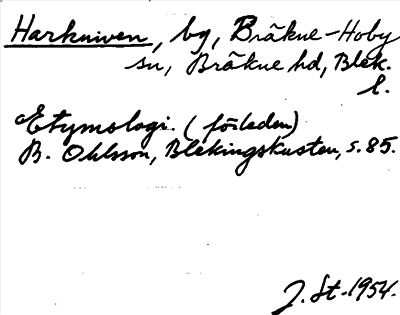 Harkniven, by, Bräkne-Hoby
sn, Bräkne hd, Blek.
l.
Etymologi. (förleden)
B. Ohlsson, Blekingskusten, s. 85.
J. St. 1954.